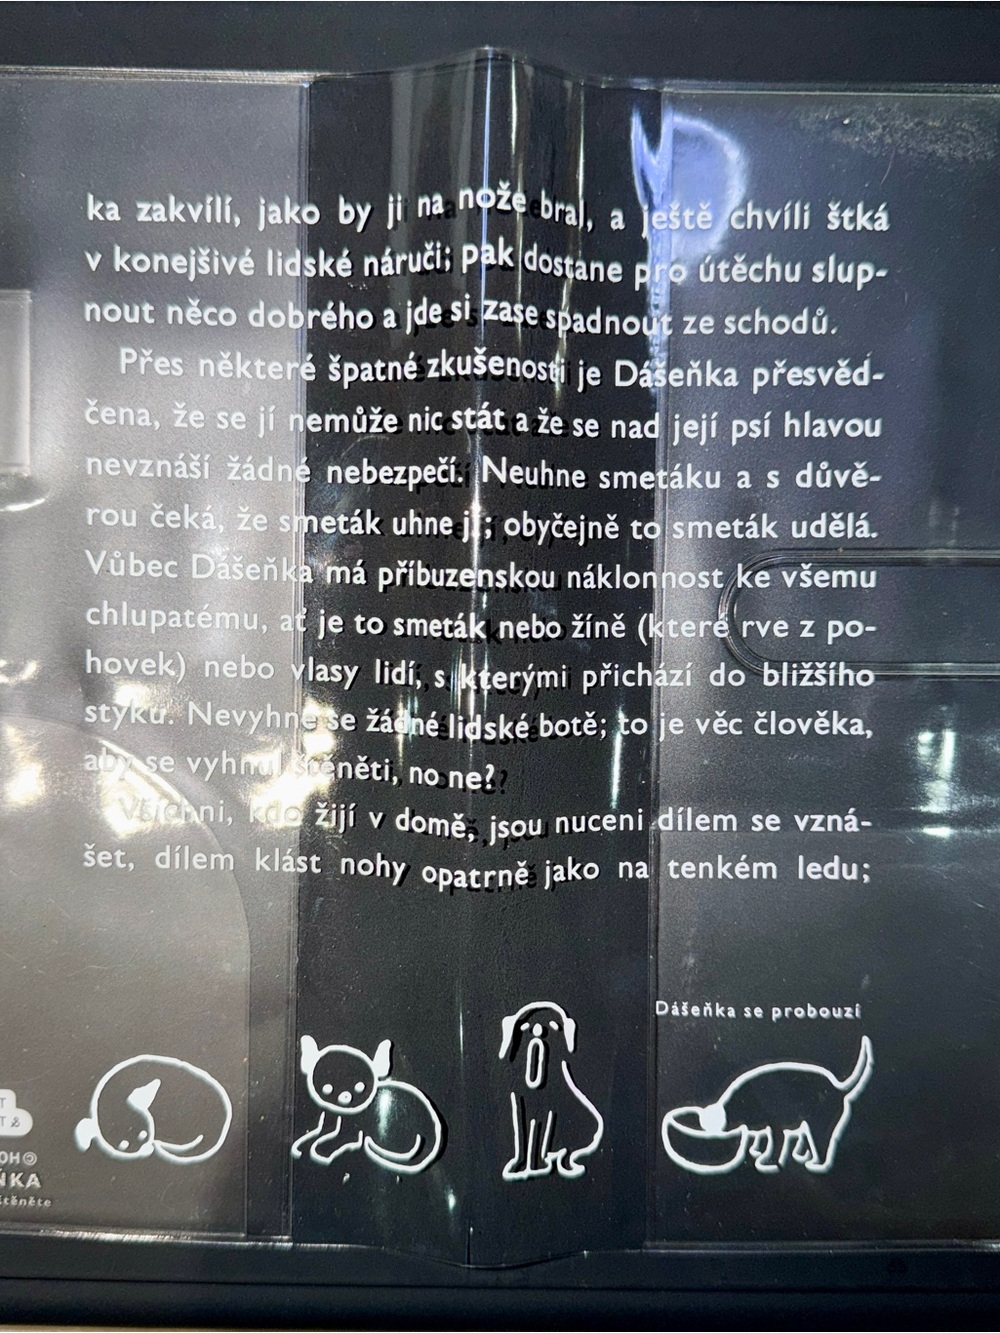 ka zakvílí, jako by ji na nože bral, a ještě chvíli štká
v konejšivé lidské náruči; pak dostane pro útěchu slup-
nout něco dobrého a jde si zase spadnout ze schodů.
Přes některé špatné zkušenosti je Dášeňka přesvěd-
čena, že se jí nemůže nic stát a že se nad její psí hlavou
nevznáší žádné nebezpečí. Neuhne smetáku a s důvě-
rou čeká, že smeták uhne jí; obyčejně to smeták udělá.
Vůbec Dášeňka má příbuzenskou náklonnost ke všemu
chlupatému, ať je to smeták nebo žíně (které rve z po-
hovek) nebo vlasy lidí, s kterými přichází do bližšího
styku. Nevyhne se žádné lidské botě; to je věc člověka,
aby se vyhnul štěněti, no ne?
Všichni, kdo žijí v domě, jsou nuceni dílem se vzná-
šet, dílem klást nohy opatrně jako na tenkém ledu;
Dášeňka se probouzí
štěněte